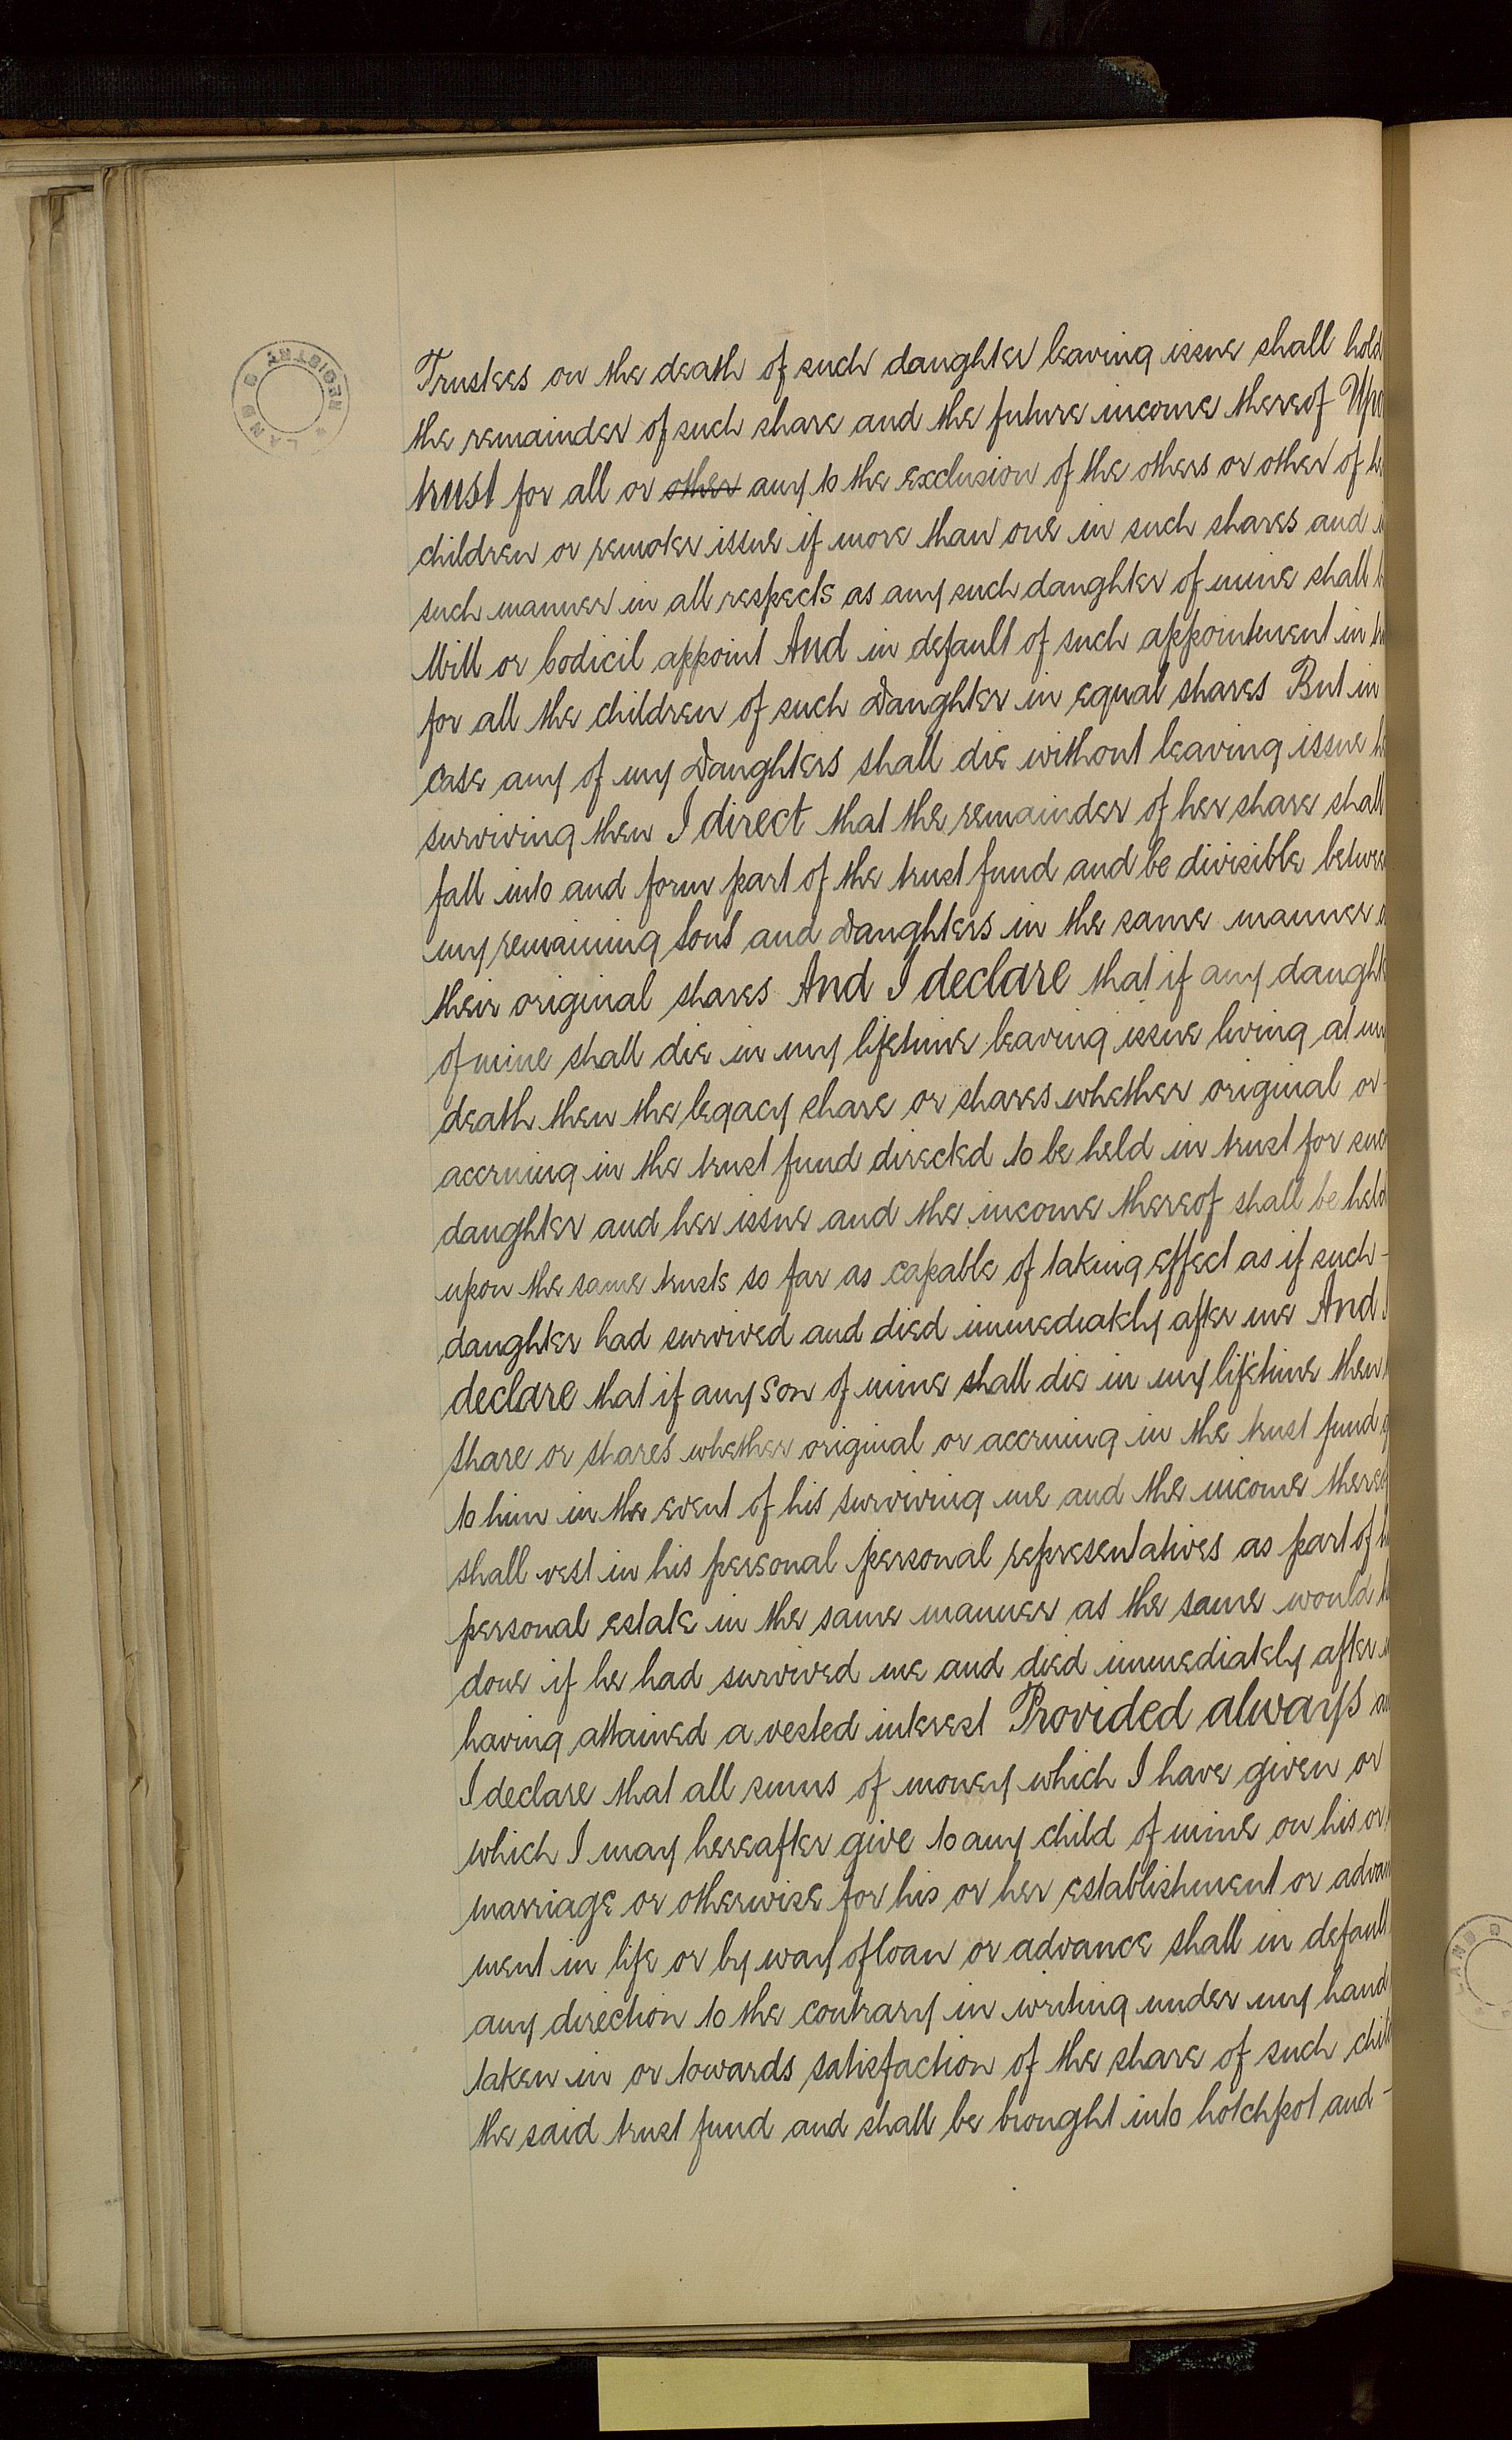 LAND REGISTRY
Trustees on the death of such daughter leaving issue shall hold
the remainder of such share and the future income thereof Upo
trust for all or other any to the exclusion of the others or other of h
children or remoter issue if more than one in such shares and
such manner in all respects as any such daughter of mine shall b
Will or Codicil appoint And in default of such appointment in tr
for all the children of such Daughter in equal shares But in
case any of my Daughters shall die without leaving issue h
surviving then I direct that the remainder of her share shall
fall into and form part of the trust fund and be divisible betwee
my remaining Sons and Daughters in the same manner a
their original shares And I declare that if any daughte
of mine shall die in my lifetime leaving issue living at my
death then the legacy share or shares whether original or
accruing in the trust fund directed to be held in trust for suc
daughter and her issue and the income thereof shall be held
upon the same trusts so far as capable of taking effect as if such
daughter had survived and died immediately after me And I
declare that if any son of mine shall die in my lifetime then
share or shares whether original or accruing in the trust fund g
to him in the event of his surviving me and the income thereo
shall vest in his personal personal representatives as part of h
personal estate in the same manner as the same would h
done if he had survived me and died immediately after m
having attained a vested interest Provided always an
I declare that all sums of money which I have given or
which I may hereafter give to any child of mine on his or
marriage or otherwise for his or her establishment or advan
ment in life or by way of loan or advance shall in default
any direction to the contrary in writing under my hand
taken in or towards satisfaction of the share of such chil
the said trust fund and shall be brought into hotchpot and -